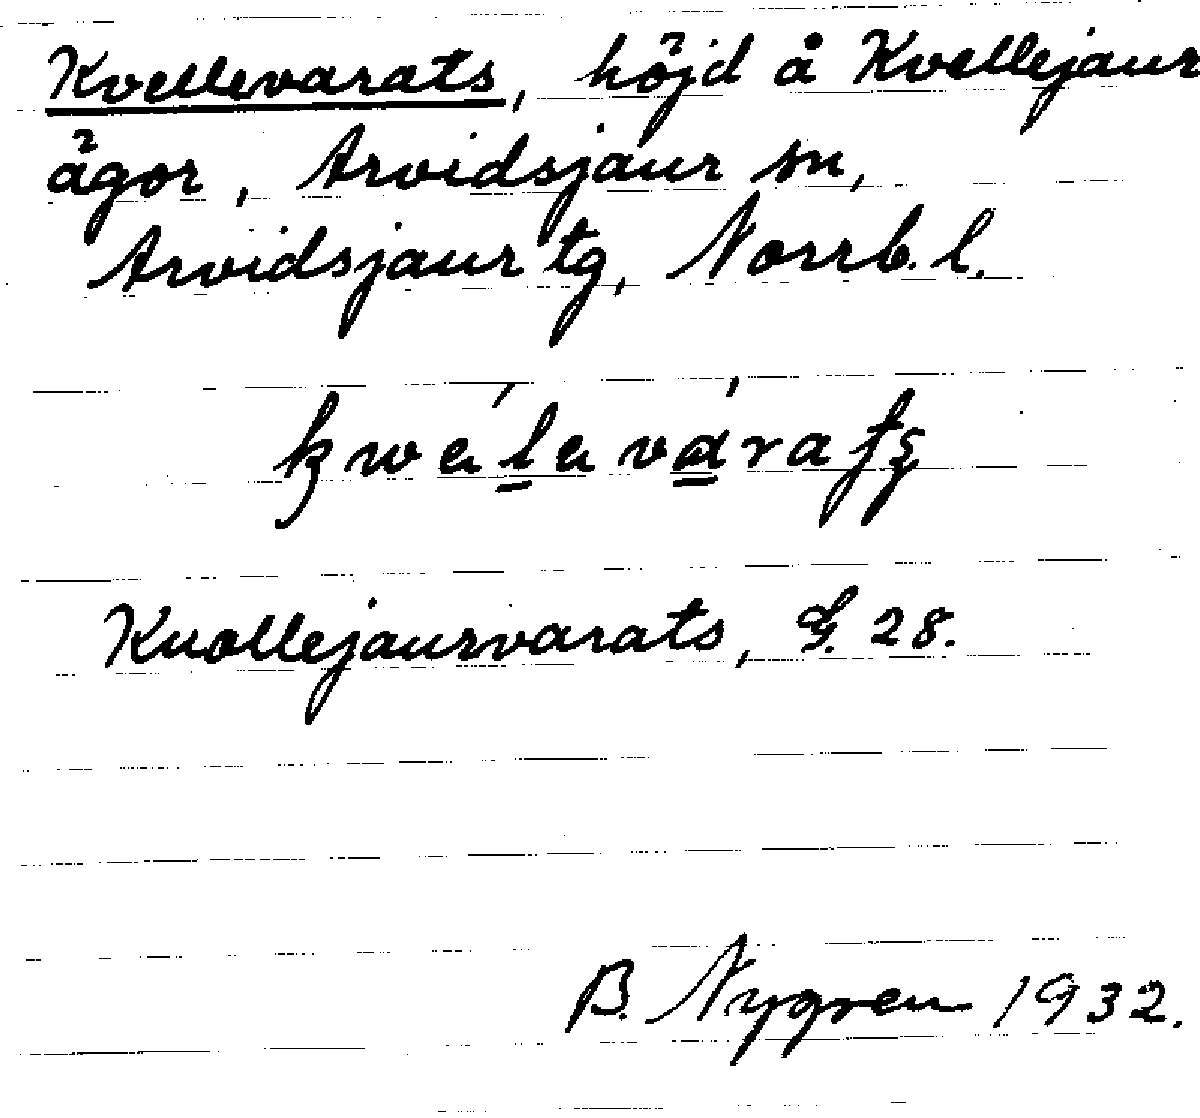 Kvellevarats, höjd å Kvellejaur
ägor, Arvidsjaur sn,
Arvidsjaur tg, Norrb. l.
Kuollejaurvarats, G. 28.
B. Nygren 1932.